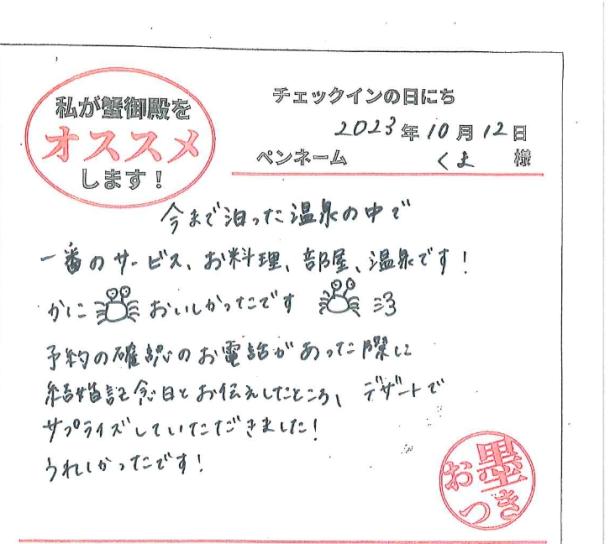 私が蟹御殿を
オススメ
します!
チェックインの日にち
2023年10月12日
ペンネーム くま 様
今まで泊った温泉の中で
一番のサービス、お料理、部屋、温泉です!
かに おいしかったです
予約の確認のお電話があった際に
結婚記念日とお伝えしたところ、デザートで
サプライズしていただきました!
うれしかったです!
お墨つき